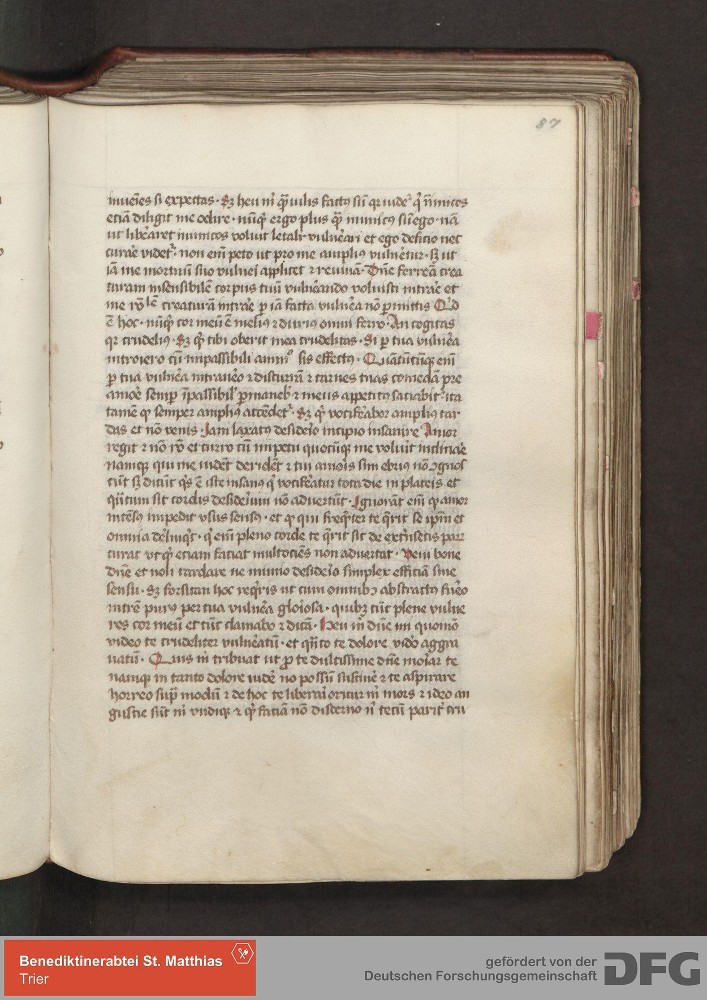 87
inuenies si expectas · Sz heu m̄ qͣ uilis factus sū qr̄ iude⁹ qͥ īimicos
etiā diligit me odire · nūqͥd ergo plus qͣ inimicus sū ego · nā
ut liberaret inimicos voluit letalit̾ vulnerari et ego deficio nec
curare videt᷑ · non em̄ peto ut pro me amplius vulneret᷑ · sz ut
iā me mortuū suo vulneri applicet ⁊ reuiuā · Dn̄e ferreā crea
turam insensibilē corpus tuū vulnerando voluisti intrare et
me rōⁱˡᵉ creaturā intrare p iā facta vulnera nō pmittis Qͥd
ē hoc · nūqͥd cor meū ē melius ⁊ durius omni ferro · An cogitas
qr̄ crudelis · Sz qͥ tibi oberit mea crudelitas · Si p tua vulnera
introiero cū impassibili
p tua vulnera intrauero ⁊ discurrā ⁊ carnes tuas comedā pre
amore semp īpassibilʼ pmaneb̄ ⁊ meus appetitus saciabit᷑ · ita
tamē qͩ semper amplius accēdet᷑ · Sz qͥ vociferabor amplius tar
das et nō venis · Jam laxatus desiderio incipio insanire Amor
regit ⁊ nō rō et curro cū impetu quocūqꝫ me voluit inclinare
namqꝫ qui me vidēt deridēt ⁊ tui amoris sim ebrius nō ꝯgnos
cūt sz dicūt qͥs ē iste insanus qͥ vociferatur tota die in plateis et
qͣntum sit cordis desiderium nō aduertūt · Jgnorāt em̄ qͩ amor
intēsus impedit vsus sensus · et qͩ qui frequēter te qͥrit se ip̄m et
omnia derelinqͥt · qͥ em̄ pleno corde te qͥrit sic de extrīsecis parū
curat vt qͩ etiam faciat multociēs non aduertat · Veni bone
dn̄e et noli tardare ne nimio desiderio simplex efficiā sine
sensu · Sz forsitan hoc reqͥris ut cum omnibꝫ abstractus fuero
intrē purus per tua vulnera gloriosa · quibꝫ tūc plene vulne
res cor meū et tūc clamabo ⁊ dicā · Heu m̄ dn̄e mi quomō
video te crudeliter vulneratū · et qͣnto te dolore video aggra
uatū · Quis m̄ tribuat ut p te dulcissime dn̄e moriar te
namqꝫ in tanto dolore videre nō possū sustinere ⁊ te aspirare
horreo supͣ modū ⁊ de hoc te liberari oritur m̄ mors ⁊ ideo an
gustie sūt m̄ vndiqꝫ ⁊ qͥd faciā nō discerno nⁱ tecū parit̾ cru
Benediktinerabtei St. Matthias
Trier
gefördert von der
Deutschen Forschungsgemeinschaft
DFG